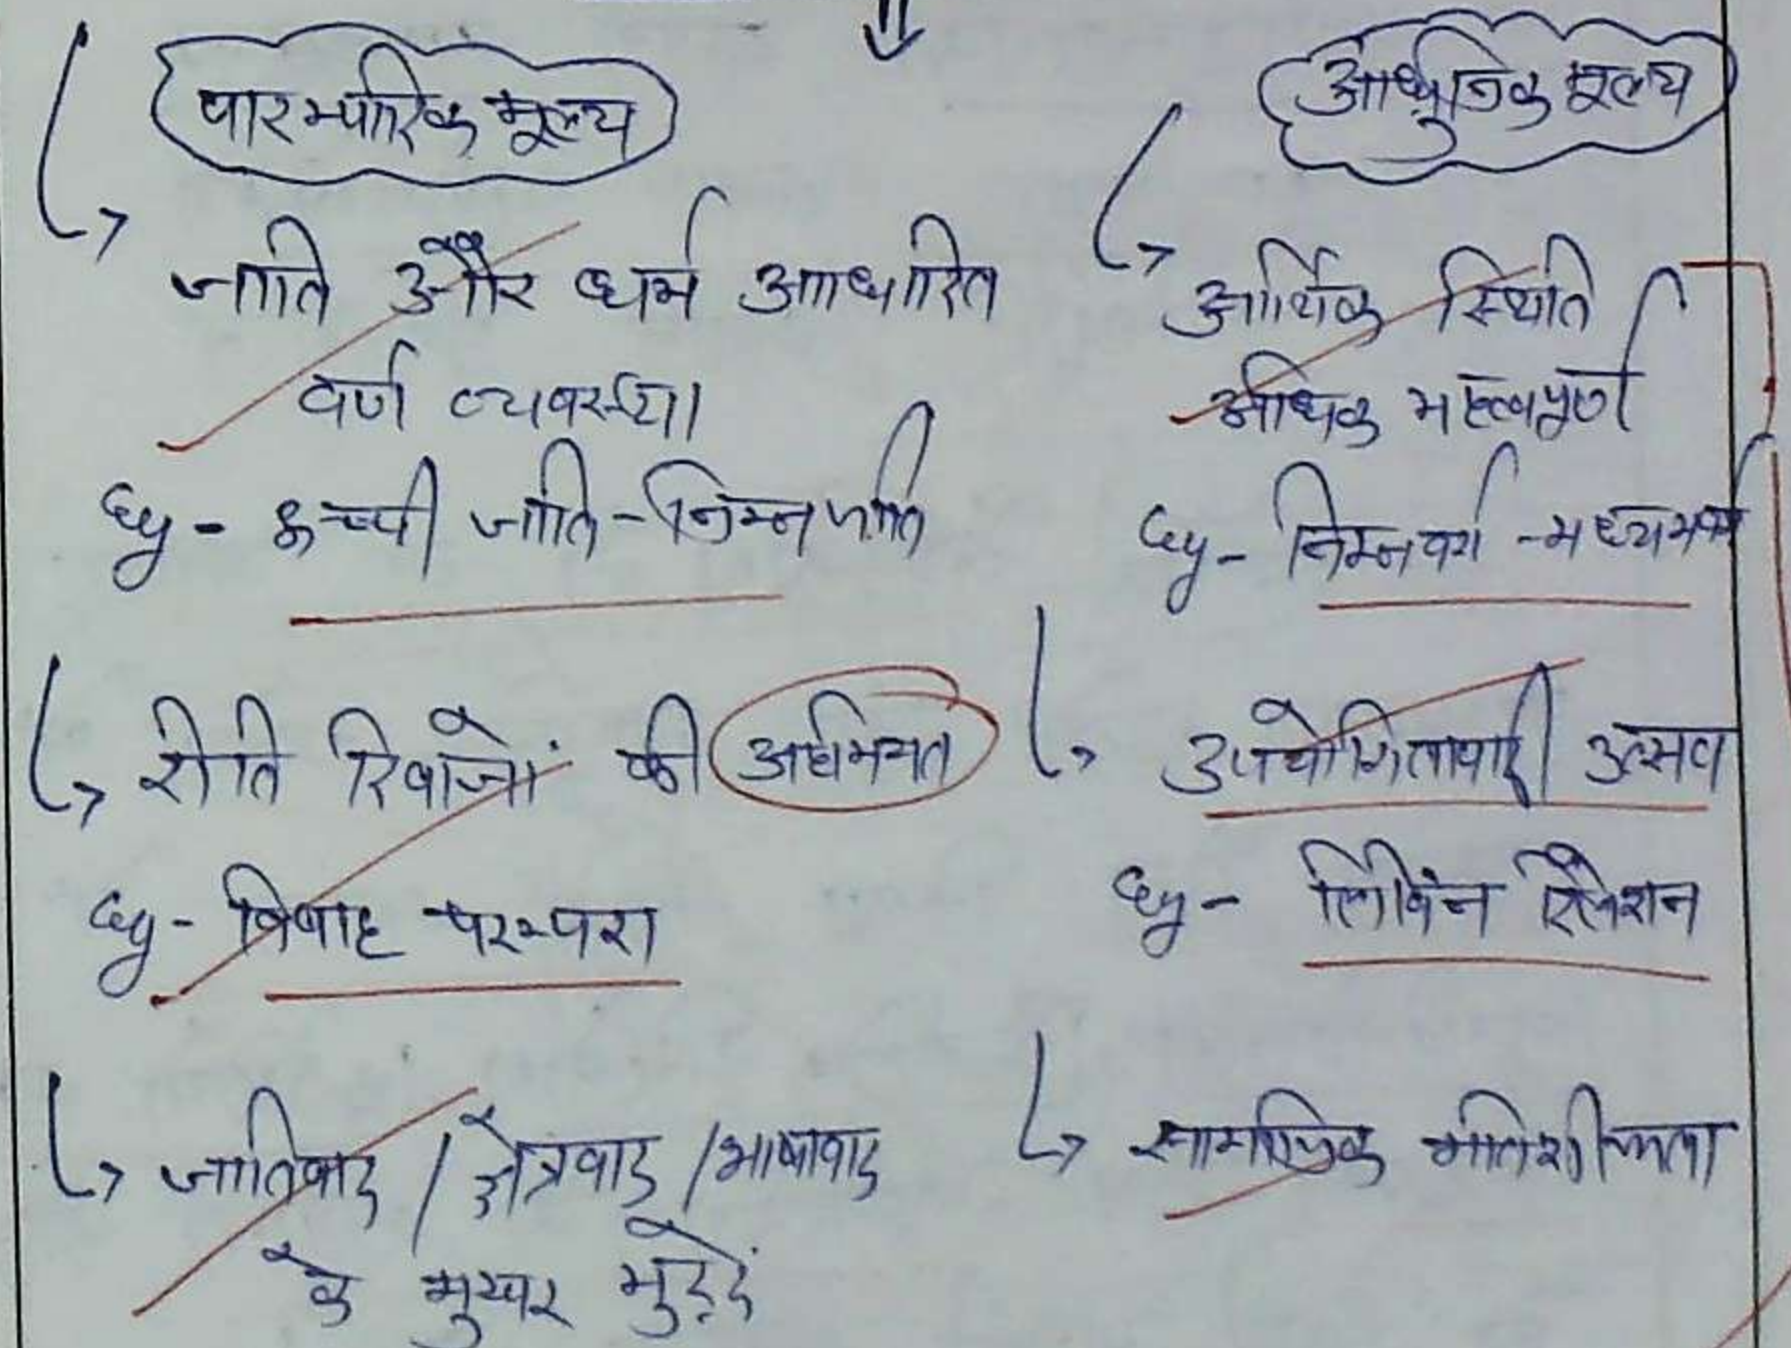 पारम्परिक मूल्य
जाति और धर्म आधारित
वर्ण व्यवस्था
eg - जाति - निम्न जाति
रीति रिवाजों की
eg - विवाह परम्परा
जातिवाद / क्षेत्रवाद / भाषावाद
के मुखर मुद्दें
आधुनिक मूल्य
आर्थिक स्थिति
अधिक महत्वपूर्ण
eg - निम्नवर्ग - मध्यमवर्ग
उपयोगितावादी उत्सव
eg - लिविंन रिलेशन
सामाजिक गतिशीलता